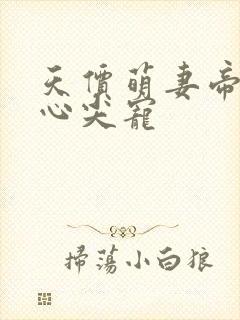 天價萌妻帝
心尖寵
掃蕩小白狼